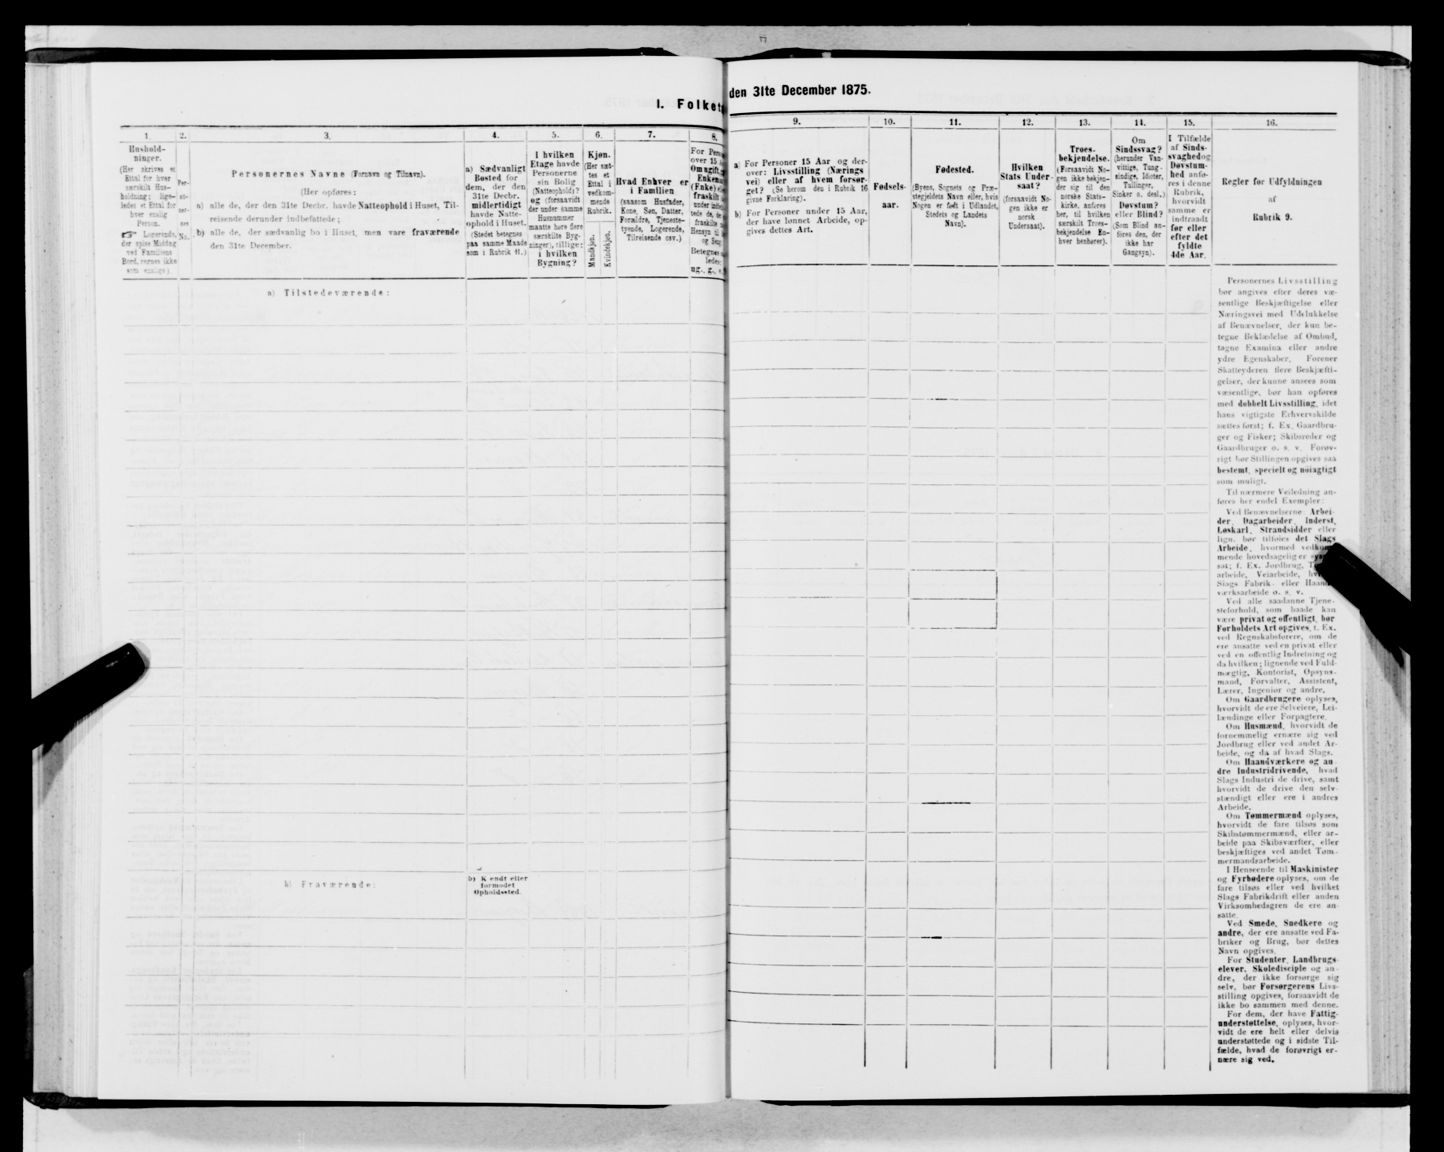 I. Folket
den 31te December 1875.
1.
2.
3.
4.
5.
6.
7.
8.
9.
10.
11.
12.
13.
14.
15.
16.
Hushold-
ninger.
(Her skrives et
Ettal for hver
særskilt Hus-
holdning; lige-
ledes et Ettal for
hver enslig
Person.
☞ Logerende,
der spise Middag
ved Familiens
Bord, regnes ikke
som enslige)
Per-
so-
ner-
nes
No.
Personernes Navne (Fornavn og Tilnavn).
(Her opføres:
a) alle de, der den 31te Decbr. havde Natteophold i Huset, Til-
reisende derunder indbefattede;
b) alle de, der sædvanlig bo i Huset, men vare fraværende
den 31te December.
a) Sædvanligt
Bosted for
dem, der den
31te Decbr.
midlertidigt
havde Natte-
ophold i Huset.
(Stedet betegnes
paa samme Maade
som i Rubrik 11.)
I hvilken
Etage havde
Personerne
sin Bolig
(Natteophold?
og (forsaavidt
der under samme
Husnummer
maatte høre flere
særskilte Byg-
ninger), tillige:
i hvilken
Bygning?
Kjøn.
(Her sæt-
tes et
Ettal i
vedkom-
mende
Rubrik.
Mandkjøn.
Kvindekjøn.
Hvad Enhver er
i Familien
(saasom Husfader,
Kone, Søn, Datter,
Forældre, Tjeneste-
tyende, Logerende,
Tilreisende osv.)
For Pers
over 15
Om ugift,
Enkem
(Enke)
fraskilt
under
tede de, de
fraskilte
Hensyn til
og Seng
Betegnes
ledes:
ug., g., e.
a) For Personer 15 Aar og der-
over: Livsstilling (Nærings
vei) eller af hvem forsør-
get? (Se herom den i Rubrik 16
givne Forklaring).
b) For Personer under 15 Aar,
der have lønnet Arbeide, op-
gives dettes Art.
Fødsels-
aar.
Fødested.
(Byens, Sognets og Præ-
stegjeldets Navn eller, hvis
Nogen er født i Udlandet,
Stedets og Landets
Navn).
Hvilken
Stats Under-
saat?
(forsaavidt No-
gen ikke er
norsk
Undersaat).
Troes-
bekjendelse.
(Forsaavidt No-
gen ikke bekjen-
der sig til den
norske Stats-
kirke, anføres
her, til hvilken
særskilt Troes-
bekjendelse En-
hver henhører).
Om
Sindssvag?
(herunder Van-
vittige, Tung-
sindige, Idioter,
Tullinger,
Sinker o. desl.,)
Døvstum?
eller Blind?
(Som Blind an-
føres den, der
ikke har
Gangsyn).
I Tilfælde
af Sinds-
svaghed og
Døvstum-
hed anfø-
res i denne
Rubrik,
hvorvidt
samme er
indtraadt
før eller
efter det
fyldte
4de Aar.
Regler for Udfyldningen
af
Rubrik 9.
a) Tilstedeværende:
b) Fraværende:
b) Kjendt eller
formodet
Opholdssted.
Personernes Livsstilling
bør angives efter deres væ-
sentlige Beskjæftigelse eller
Næringsvei med Udelukkelse
af Benævnelser, der kun be-
tegne Beklædelse af Ombud,
tagne Examina eller andre
ydre Egenskaber. Forener
Skatteyderen flere Beskjæfti-
gelser, der kunne ansees som
væsentlige, bør han opføres
med dobbelt Livsstilling, idet
hans vigtigste Erhvervskilde
sættes først; f. Ex. Gaardbru-
ger og Fisker; Skibsreder og
Gaardbruger o. s. v. Forøv-
rigt bør Stillingen opgives saa
bestemt, specielt og nøiagtigt
som muligt.
Til nærmere Veiledning an-
føres her endel Exempler:
Ved Benævnelserne Arbei-
der, Dagarbeider, Inderst,
Løskarl, Strandsidder eller
lign. bør tilføies det Slags
Arbeide, hvormed vedkom-
mende hovedsagelig er syssel-
sat; f. Ex. Jordbrug,
arbeide, Veiarbeide,
Slags Fabrik- eller Haand-
værksarbeide o. s. v.
Ved alle saadanne Tjene-
steforhold, som baade kan
være privat og offentligt, bør
Forholdets Art opgives, f. Ex.
ved Regnskabsførere, om de
ere ansatte ved en privat eller
ved en offentlig Indretning og
da hvilken; lignende ved Fuld-
mægtig, Kontorist, Opsyns-
mand, Forvalter, Assistent,
Lærer, Ingeniør og andre.
Om Gaardbrugere oplyses,
hvorvidt de ere Selveiere, Lei-
lændinge eller Forpagtere.
Om Husmænd, hvorvidt de
fornemmelig ernære sig ved
Jordbrug eller ved andet Ar-
beide, og da af hvad Slags.
Om Haandværkere og an-
dre Industridrivende, hvad
Slags Industri de drive, samt
hvorvidt de drive den selv-
stændigt eller ere i andres
Arbeide.
Om Tømmermænd oplyses,
hvorvidt de fare tilsøs som
Skibstømmermænd, eller ar-
beide paa Skibsværfter, eller
beskjæftiges ved andet Tøm-
mermandsarbeide.
I Henseende til Maskinister
og Fyrbødere oplyses, om de
fare tilsøs eller ved hvilket
Slags Fabrikdrift eller anden
Virksomhedsgren de ere an-
satte.
Ved Smede, Snedkere og
andre, der ere ansatte ved Fa-
briker og Brug, bør dettes
Navn opgives.
For Studenter, Landbrugs-
elever, Skoledisciple og an-
dre, der ikke forsørge sig
selv, bør Forsørgerens Livs-
stilling opgives, forsaavidt de
ikke bo sammen med denne.
For dem, der have Fattig-
understøttelse, oplyses, hvor-
vidt de ere helt eller delvis
understøttede og i sidste Til-
fælde, hvad de forøvrigt er-
nære sig ved.